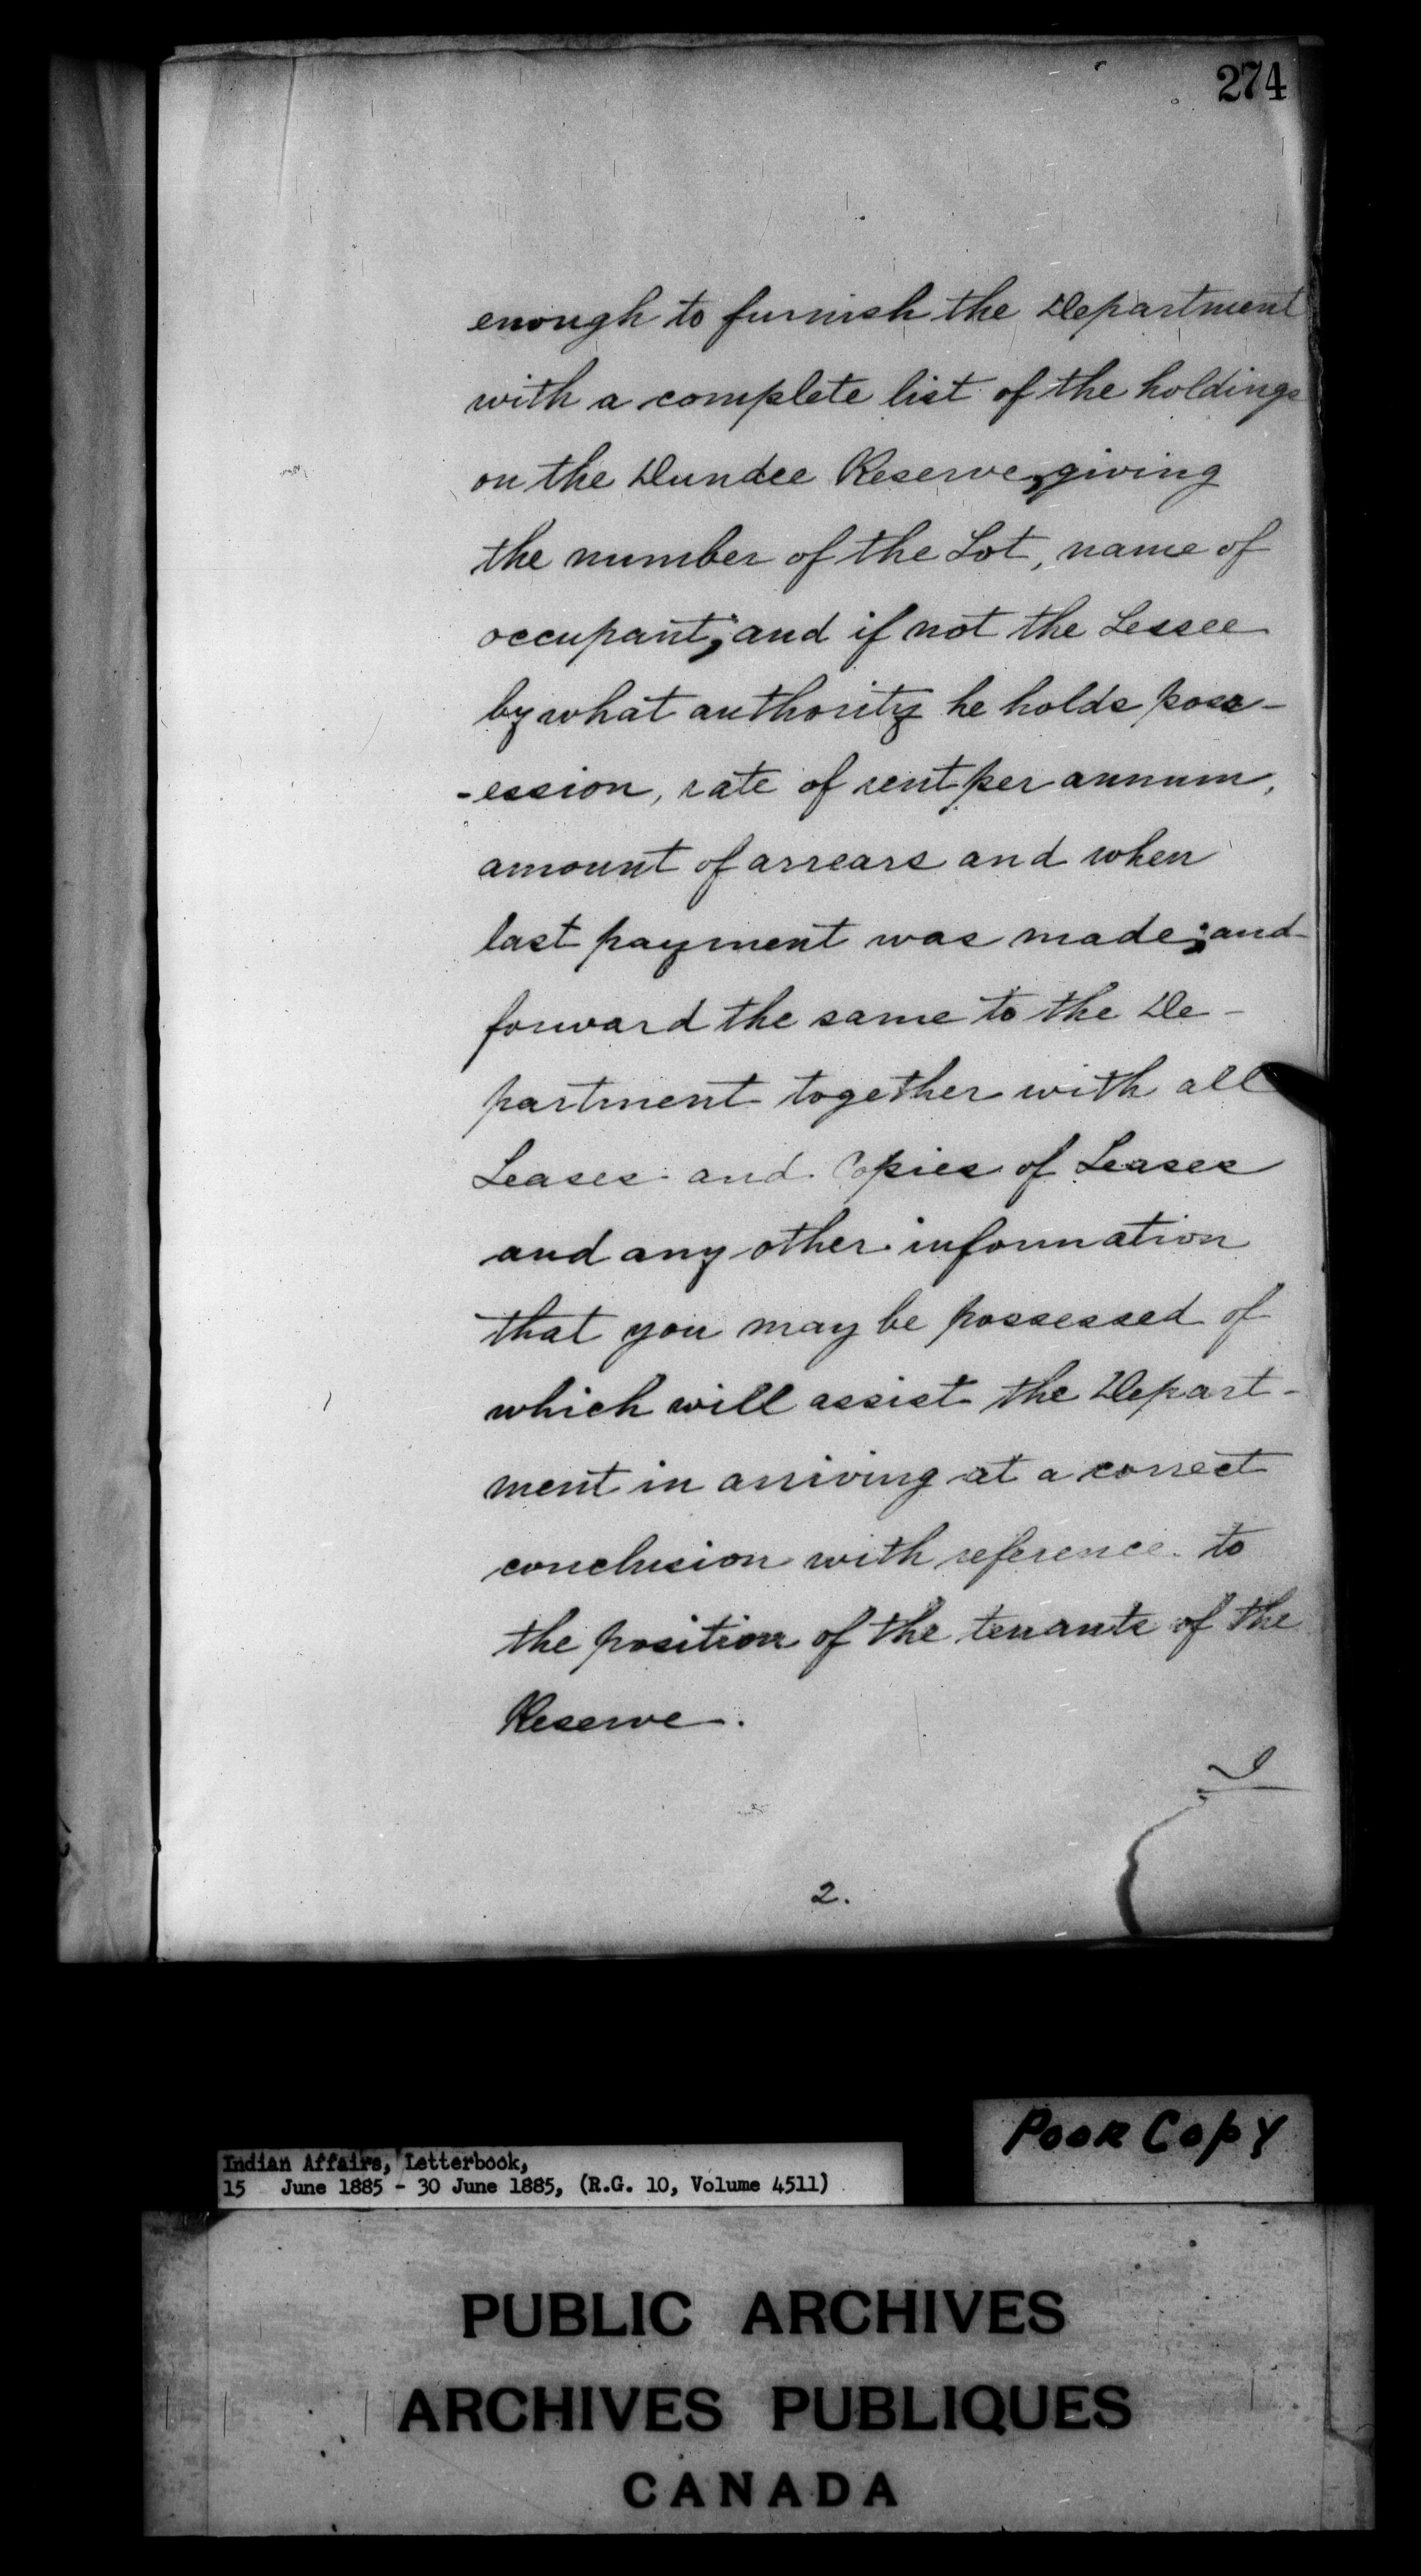 274
enough to furnish the Department
with a complete list of the holdings
on the Dundee Reserve, giving
the number of the Lot, name of
occupant; and if not the Lessee
by what authority he holds poss-
-ession, rate of rent per annum,
amount of arrears and when
last payment was made; and
forward the same to the De-
partment together with all
Leases and Copies of Leases
and any other information
that you may be possessed of
which will assist the Depart-
ment in arriving at a correct
conclusion with reference to
the position of the tenants of the
Reserve.
I
2.
Poor Copy
Indian Affairs, Letterbook,
15 June 1885 - 30 June 1885, (R.G. 10, Volume 4511)
PUBLIC ARCHIVES
ARCHIVES PUBLIQUES
CANADA